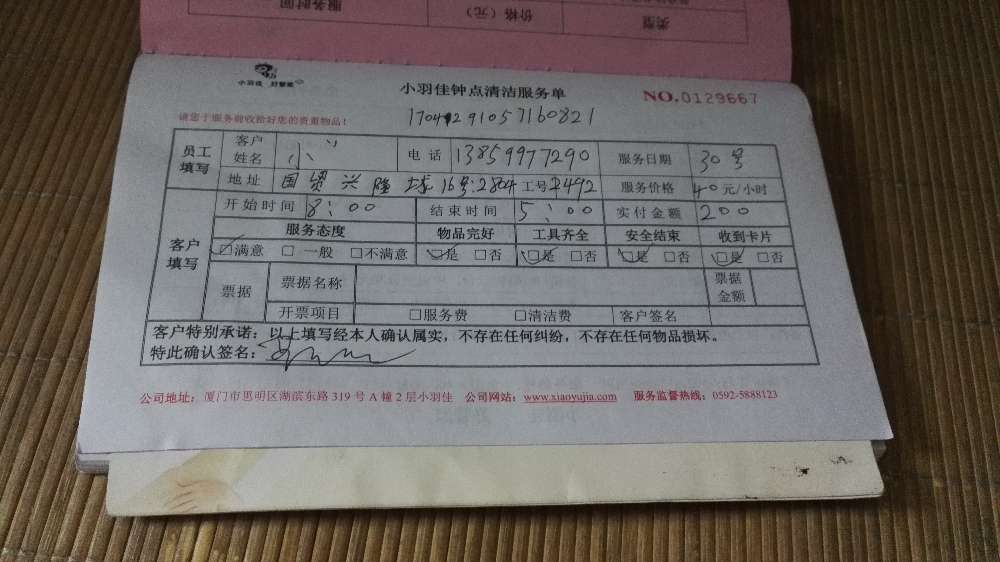 类型 价格（元） 服务时间
小羽佳 好管家
小羽佳钟点清洁服务单
NO.0129667
请您于服务前收拾好您的贵重物品！
员工填写 客户姓名 小 电话 13859977290 服务日期 30号
地址 国贸兴隆 16号:2804 工号 服务价格 40元/小时
开始时间 8:00 结束时间 5:00 实付金额 200
客户填写 服务态度 物品完好 工具齐全 安全结束 收到卡片
☑满意 □一般 □不满意 ☑是 □否 ☑是 □否 ☑是 □否 ☑是 □否
票据 票据名称 票据金额
开票项目 □服务费 □清洁费 客户签名
客户特别承诺：以上填写经本人确认属实，不存在任何纠纷，不存在任何物品损坏。
特此确认签名：
公司地址：厦门市思明区湖滨东路319号A幢2层小羽佳 公司网站：www.xiaoyujia.com 服务监督热线：0592-5888123